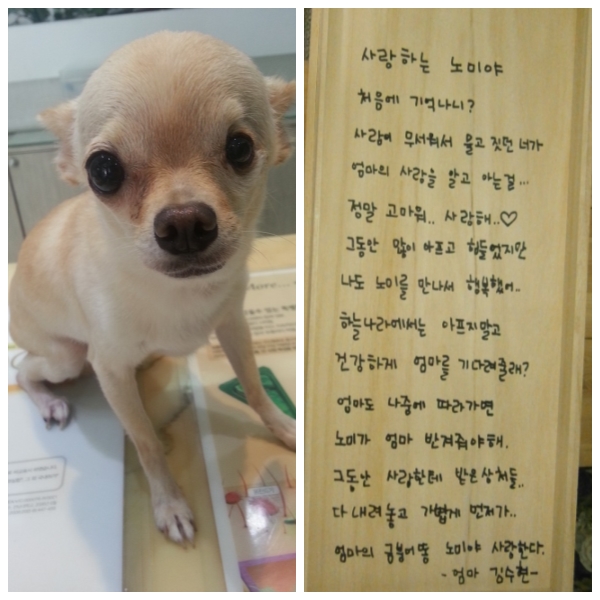 사랑하는 노미야
처음에 기억나니?
사람이 무서워서 울고 짓던 너가
엄마의 사랑을 알고 아는걸...
정말 고마워.. 사랑해..♡
그동안 많이 아프고 힘들었지만
나도 노미를 만나서 행복했어..
하늘나라에서는 아프지말고
건강하게 엄마를 기다려줄래?
엄마도 나중에 따라가면
노미가 엄마 반겨줘야해.
그동안 사람한테 받은상처들..
다 내려놓고 가볍게 먼저가..
엄마의 금붕어똥 노미야 사랑한다.
-엄마 김수현-